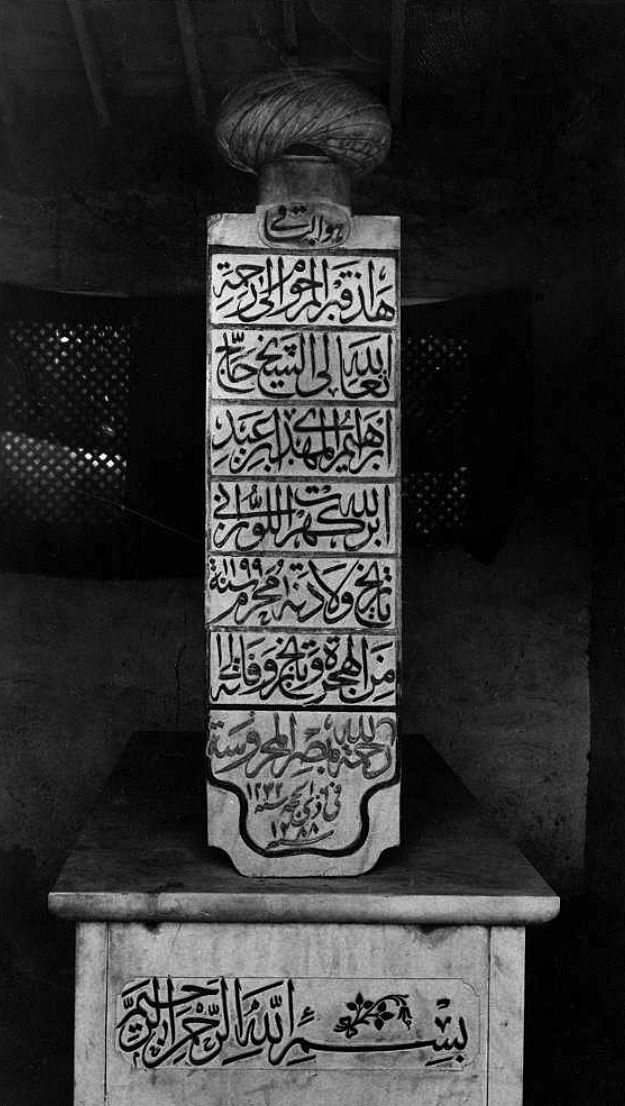 هو الباقي
هذا قبر المرحوم الى رحمة
الله تعالى الشيخ حاج
ابراهيم المهدى ابن عبد
الله بركهرت اللوزاني
تاريخ ولادته ١٠ محرم سنة ١١٩٩
من الهجرة وتاريخ وفاته الى
رحمة الله بمصر المحروسة
في ذي الحجه سنة ١٢٣٢
سنة ١٢٨٨
بسم الله الرحمن الرحيم